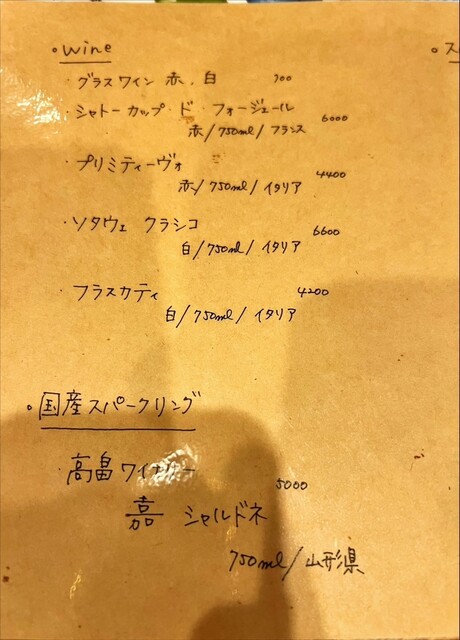 。wine
・グラスワイン 赤、白 700
・シャトー カップ・ド・フォージェール 6000
赤/750ml/フランス
・プリミティーヴォ 4400
赤/750ml/イタリア
・ソタウェ クラシコ 6600
白/750ml/イタリア
・フラスカティ 4200
白/750ml/イタリア
。国産スパークリング
・高畠ワイナリー 5000
嘉 シャルドネ
750ml/山形県
。ス